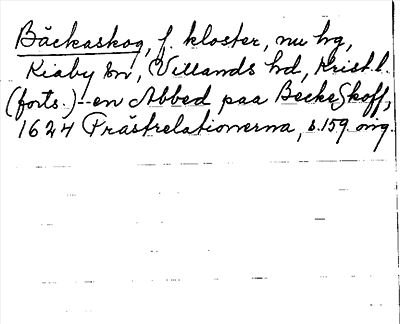 Bäckaskog, f. kloster, nu hg,
Kiaby sn, Villands hd, Krist.l.
(forts.) - en Abbed paa BeckeSkoff,
1624 Prästrelationerna, s. 159 orig.